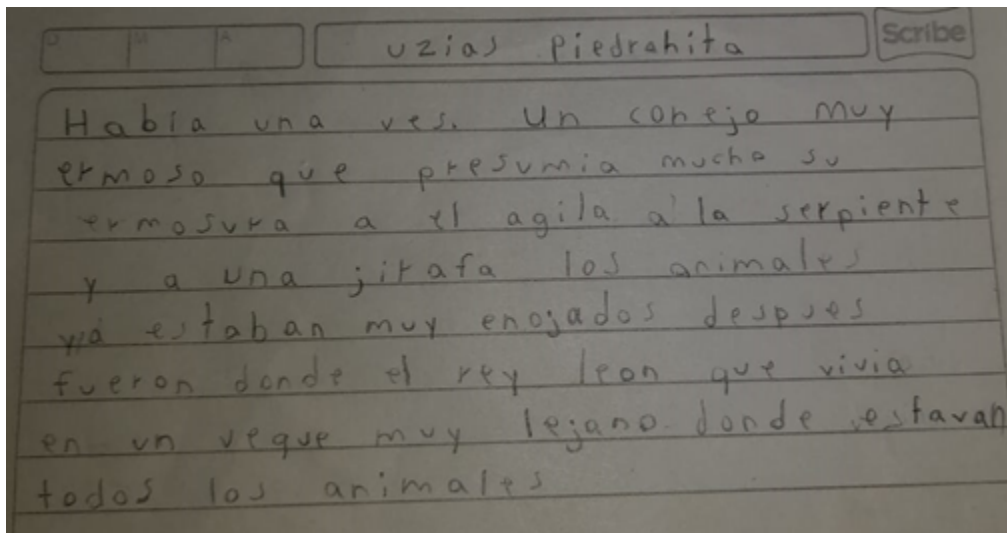 D M A
Uzias Piedrahita
Scribe
Había una ves. Un conejo muy
ermoso que presumia mucho su
ermosura a el agila a la serpiente
y a una jirafa los animales
ya estaban muy enojados despues
fueron donde el rey leon que vivia
en un veque muy lejano donde estavan
todos los animales